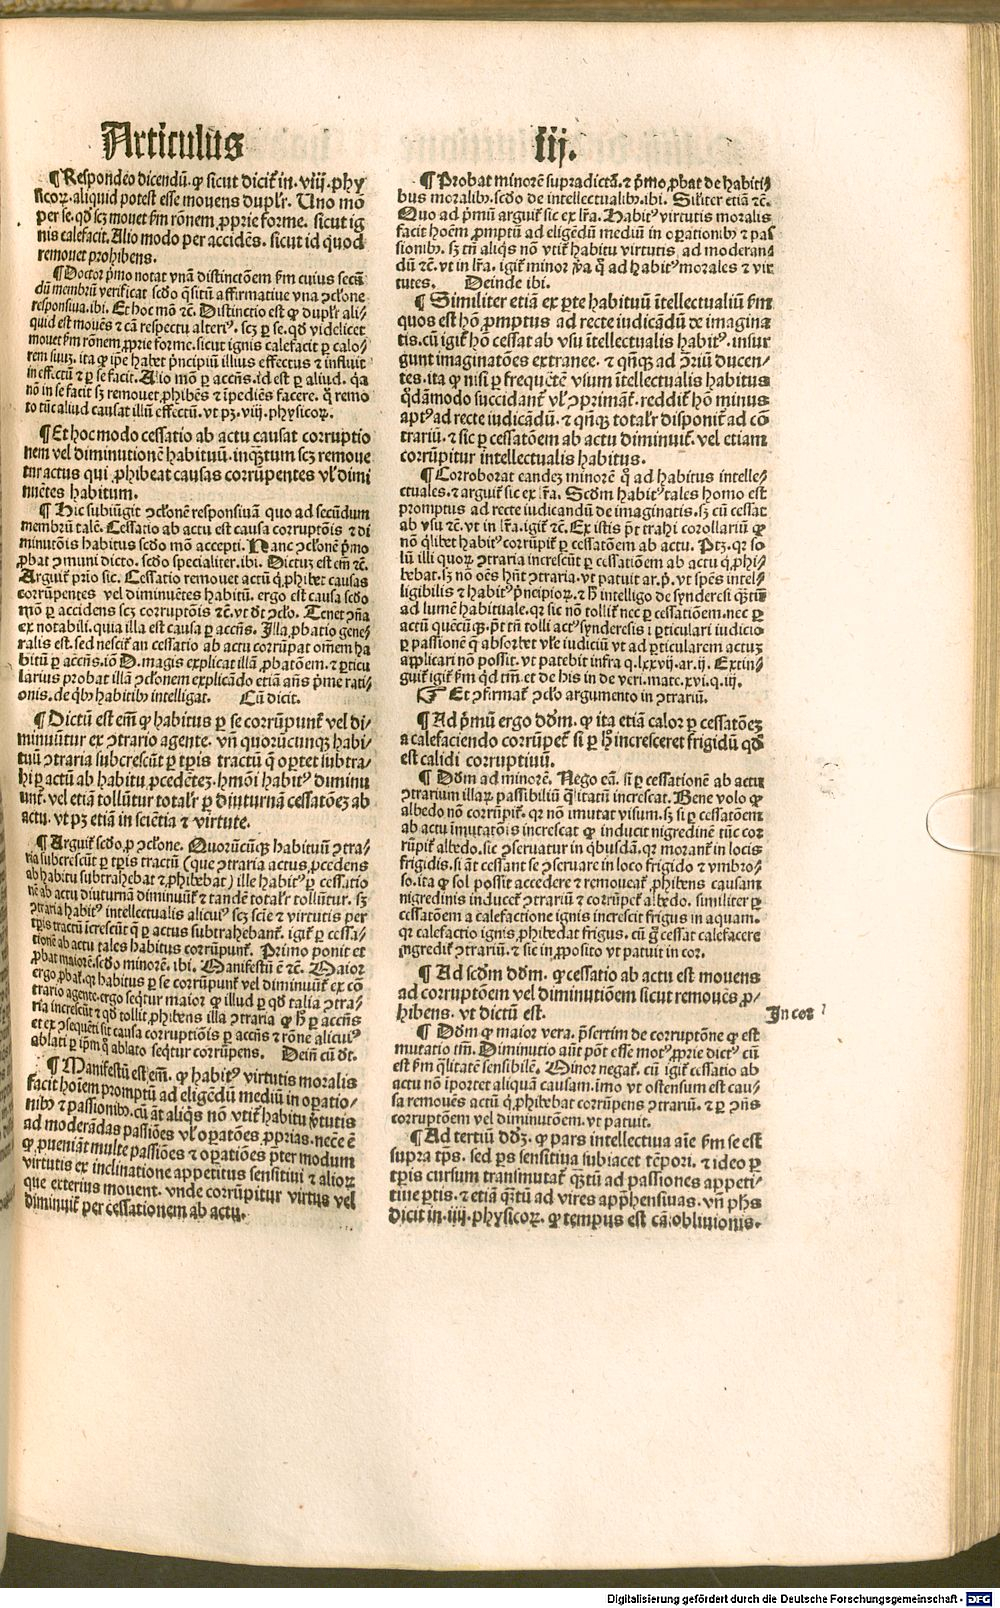 Articulus iij.
¶ Respondeo dicendū. ꝙ sicut dicit᷑ in .viij. phy
sicoꝝ. aliquid potest esse mouens duplr̄. Uno mō
per se. qd̄ scꝫ mouet ẜm rōnem ꝓprie forme. sicut ig
nis calefacit. Alio modo per accidēs. sicut id quod
remouet prohibens.
¶ Doctor pͥmo notat vnā distinctōem ẜm cuius secū
dū membrū verificat᷑ scd̓o q̄sitū affirmatiue vna ↄclōne
responsiua. ibi. Et hoc mō ⁊c̄. Distinctio est ꝙ duplr̄ ali⸗
quid est mouēs ⁊ cā respectu alteriꝰ. scꝫ ꝑ se. qd̄ videlicet
mouet ẜm rōnem ꝓprie forme. sicut ignis calefacit ꝑ calo⸗
rem suuꝫ. ita ꝙ ip̄e habet pͥncipiū illius effectus ⁊ influit
in effectū ⁊ ꝑ se facit. Alio mō ꝑ accn̄s. id est ꝑ aliud. qͥa
nō in se facit sꝫ remouet ꝓhibēs ⁊ īpediēs facere. qͦ remo
to tūc aliud causat illū effectū. vt pꝫ .viij. physicoꝝ.
¶ Et hoc modo cessatio ab actu causat corruptio
nem vel diminutionem habituū. inqͣꝫtum scꝫ remoue
tur actus qui ꝓhibeat causas corrūpentes vl̓ dimi
nuētes habitum.
¶ Hic subiūgit ↄclōnē responsiuā quo ad secūdum
membrū talē. Cessatio ab actu est causa corruptōis ⁊ di
minutōis habitus scd̓o mō accepti. Hanc ↄclōnē pͥmo
ꝓbat ↄmuni dicto. scd̓o specialiter. ibi. Dictuꝫ est em̄ ⁊c̄.
Arguit᷑ pͥmo sic. Cessatio remouet actū qͥ ꝓhibet causas
corrūpentes vel diminuētes habitū. ergo est causa scd̓o
mō ꝑ accidens scꝫ corruptōis ⁊c̄. vt dt̄ ↄclo. Tenet ↄn̄a
ex notabili. quia illa est causa ꝑ accn̄s. Illa ꝓbatio gene⸗
ralis est. sed nescit᷑ an cessatio ab actu corrūpat om̄em ha
bitū ꝑ accn̄s. iō D. magis explicat illā ꝓbatōem. ⁊ ꝑticu
larius probat illā ↄclōnem explicādo etiā an̄s pͥme rati⸗
onis. de qͥbꝰ habitibꝰ intelligat᷑. Cū dicit.
¶ Dictū est em̄ ꝙ habitus ꝑ se corrūpunt᷑ vel di⸗
minuūtur ex ↄtrario agente. vn̄ quorūcunqꝫ habi⸗
tuū ↄtraria subcrescūt ꝑ tp̄is tractū q̄ oꝑtet subtra⸗
hi ꝑ actū ab habitu ꝓcedētem. hmōi habitꝰ diminu
unt᷑. vel etiā tollūtur totalr̄ ꝑ diuturnā cessatōeꝫ ab
actu. vt pꝫ etiā in sciētia ⁊ virtute.
¶ Arguit᷑ scd̓o. ꝓ ↄclōne. Quorūcūqꝫ habituū ↄtra⸗
ria subcrescūt ꝑ tp̄is tractū (que ↄtraria actus ꝓcedens
ab habitu subtrahebat ⁊ ꝓhibebat) ille habitꝰ ꝑ cessatio
nē ab actu diuturnā diminuūt᷑ ⁊ tandē totalr̄ tollūtur. sꝫ
ↄtraria habitꝰ intellectualis alicuiꝰ scꝫ scīe ⁊ virtutis per
tp̄is tractū īcrescūt q̄ ꝑ actus subtrahebant᷑. igit᷑ ꝑ cessa⸗
tionē ab actu tales habitus corrūpunt᷑. Primo ponit et
ꝓbat maiorē. scd̓o minorē. ibi. Manifestū ē ⁊c̄. Maior
ergo ꝓbat᷑. qꝛ habitus ꝑ se corrūpunt᷑ vel diminuūt᷑ ex cō
trario agente. ergo seqͥtur maior ꝙ illud ꝑ qd̄ talia ↄtra⸗
ria increscūt ⁊ qd̄ tollit ꝓhibens illa ↄtraria ꝙ hͦ ꝑ accn̄s
et ex ↄsequēti sit causa corruptiōis ꝑ accn̄s ⁊ rōne alicuiꝰ
ablati ꝑ ip̄m qͦ ablato seqͥtur corrūpens. Dein̄ cū dt̄.
¶ Manifestū est em̄. ꝙ habitꝰ virtutis moralis
facit hoīem promptū ad eligēdū mediū in oꝑatio⸗
nibꝰ ⁊ passionibꝰ. cū āt aliqͥs nō vtit᷑ habitu v̓tutis
ad moderādas passiōes vl̓ oꝑatōes ꝓprias. necē ē
ꝙ ꝓueniāt multe passiōes ⁊ oꝑatiōes p̄ter modum
virtutis ex inclinatione appetitus sensitiui ⁊ alioꝝ
que exterius mouent. vnde corrūpitur virtus vel
diminuit᷑ per cessationem ab actu.
¶ Probat minorē supradictā. ⁊ pͥmo ꝓbat de habiti⸗
bus moralibꝰ. scd̓o de intellectualibꝰ. ibi. Sil̓iter etiā ⁊c̄.
Quo ad pͥmū arguit᷑ sic ex lr̄a. Habitꝰ virtutis moralis
facit hoēm ꝓmptū ad eligēdū mediū in oꝑationibꝰ ⁊ pas
sionibꝰ. sꝫ tn̄ aliqͥs nō vtit᷑ habitu virtutis ad moderan⸗
dū ⁊c̄. vt in lr̄a. igit᷑ minor v̓a qͦ ad habitꝰ morales ⁊ vir
tutes. Deinde ibi.
¶ Similiter etiā ex ꝑte habituū ītellectualiū ẜm
quos est hō ꝓmptus ad recte iudicādū de imagina
tis. cū igit᷑ hō cessat ab vsu ītellectualis habitꝰ. insur
gunt imaginatōes extranee. ⁊ qn̄qꝫ ad ↄriū ducen⸗
tes. ita ꝙ nisi ꝑ frequētē vsum ītellectualis habitus
qͦdāmodo succidant᷑ vl̓ ↄprimāt᷑. reddit᷑ hō minus
aptꝰ ad recte iudicādū. ⁊ qn̄qꝫ totalr̄ disponit᷑ ad cō
trariū. ⁊ sic ꝑ cessatōem ab actu diminuit᷑. vel etiam
corrūpitur intellectualis habitus.
¶ Corroborat eandeꝫ minorē qͦ ad habitus intelle⸗
ctuales. ⁊ arguit᷑ sic ex lr̄a. Scd̄m habitꝰ tales homo est
promptus ad recte iudicandū de imaginatis. sꝫ cū cessat
ab vsu ⁊c̄. vt in lr̄a. igit᷑ ⁊c̄. Ex istis pōt trahi corollariū ꝙ
nō qͥlibet habitꝰ corrūpit᷑ ꝑ cessatōem ab actu. Ptꝫ. qꝛ so
lū illi quoꝝ ↄtraria increscūt ꝑ cessatiōem ab actu qͥ ꝓhi⸗
bebat. sꝫ nō oēs hn̄t ↄtraria. vt patuit ar. pͥ. vt spēs intel⸗
ligibilis ⁊ habitꝰ pͥncipioꝝ. ⁊ hͦ intelligo de synderesi qͣꝫtū
ad lumē habituale. qꝛ sic nō tollit᷑ nec ꝑ cessatiōem. nec ꝑ
actū quēcūqꝫ. pn̄t tn̄ tolli actꝰ synderesis ī ꝑticulari iudicio
ꝑ passionē q̄ absorbet vl̓e iudiciū vt ad ꝑticularem actuꝫ
applicari nō possit. vt patebit infra .q. lxxvij. ar. ij. Extin⸗
guit᷑ igit᷑ ẜm qͥd tm̄. et de his in de veri. mate. xvi. q. iij.
☞ Et ↄfirmat᷑ ↄclo argumento in ↄtrariū.
¶ Ad pͥmū ergo dd̄m. ꝙ ita etiā calor ꝑ cessatōeꝫ
a calefaciendo corrūpet᷑ si ꝑ hͦ incresceret frigidū qd̄
est calidi corruptiuū.
¶ Dd̄m ad minorē. Nego eā. si ꝑ cessationē ab actu
ↄtrarium illaꝝ passibiliū q̄litatū increscat. Bene volo ꝙ
albedo nō corrūpit᷑. qꝛ nō imutat visum. sꝫ si ꝑ cessatōem
ab actu īmutatōis increscat ꝙ inducit nigredinē tūc cor
rūpit᷑ albedo. sic ↄseruatur in qͥbusdā. qꝛ morant᷑ in locis
frigidis. si āt cessant se ↄseruare in loco frigido ⁊ vmbro⸗
so. ita ꝙ sol possit accedere ⁊ remoueat᷑ ꝓhibens causam
nigredinis inducet᷑ ↄtrariū ⁊ corrūpet᷑ albedo. similiter ꝑ
cessatōem a calefactione ignis increscit frigus in aquam.
qꝛ calefactio ignis ꝓhibebat frigus. cū gͦ cessat calefacere
īgredit᷑ ↄtrariū. ⁊ sic in ꝓposito vt patuit in cor.
¶ Ad scd̄m dd̄m. ꝙ cessatio ab actu est mouens
ad corruptōem vel diminutiōem sicut remouēs ꝓ⸗
hibens. vt dictū est.
In cor
¶ Dd̄m ꝙ maior vera. p̄sertim de corruptōne ꝙ est
mutatio tm̄. Diminutio aūt pōt esse motꝰ ꝓprie dictꝰ cū
est ẜm q̄litatē sensibilē. Minor negat᷑. cū igit᷑ cessatio ab
actu nō īportet aliquā causam. imo vt ostensum est cau⸗
sa remouēs actū qͥ ꝓhibebat corrūpens ↄtrariū. ⁊ ꝑ ↄn̄s
corruptōem vel diminutōem. vt patuit.
¶ Ad tertiū dd̄ꝫ. ꝙ pars intellectiua aīe ẜm se est
supra tp̄s. sed ꝑs sensitiua subiacet tēpori. ⁊ ideo ꝑ
tp̄is cursum transmutat᷑ qͣꝫtū ad passiones appeti⸗
tiue ꝑtis. ⁊ etiā qͣꝫtū ad vires app̄hensiuas. vn̄ ph̄s
dicit in .iiij. physicoꝝ. ꝙ tempus est cā obliuionis.
Digitalisierung gefördert durch die Deutsche Forschungsgemeinschaft - DFG